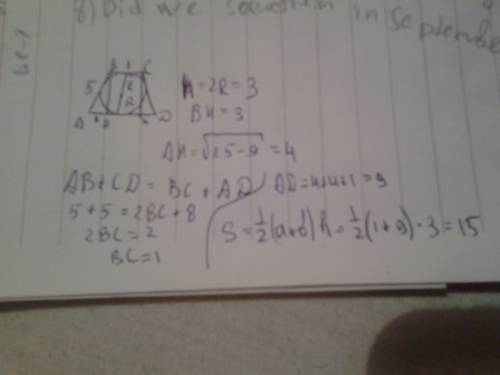 8) Did we
in Septembe
B 1 C
5
A 4 H D
h = 2R = 3
BH = 3
AH = √25-9 = 4
AB + CD = BC + AD
5 + 5 = 2BC + 8
2BC = 2
BC = 1
AD = 4+4+1 = 9
S = 1/2 (a+b) h = 1/2 (1+9) · 3 = 15